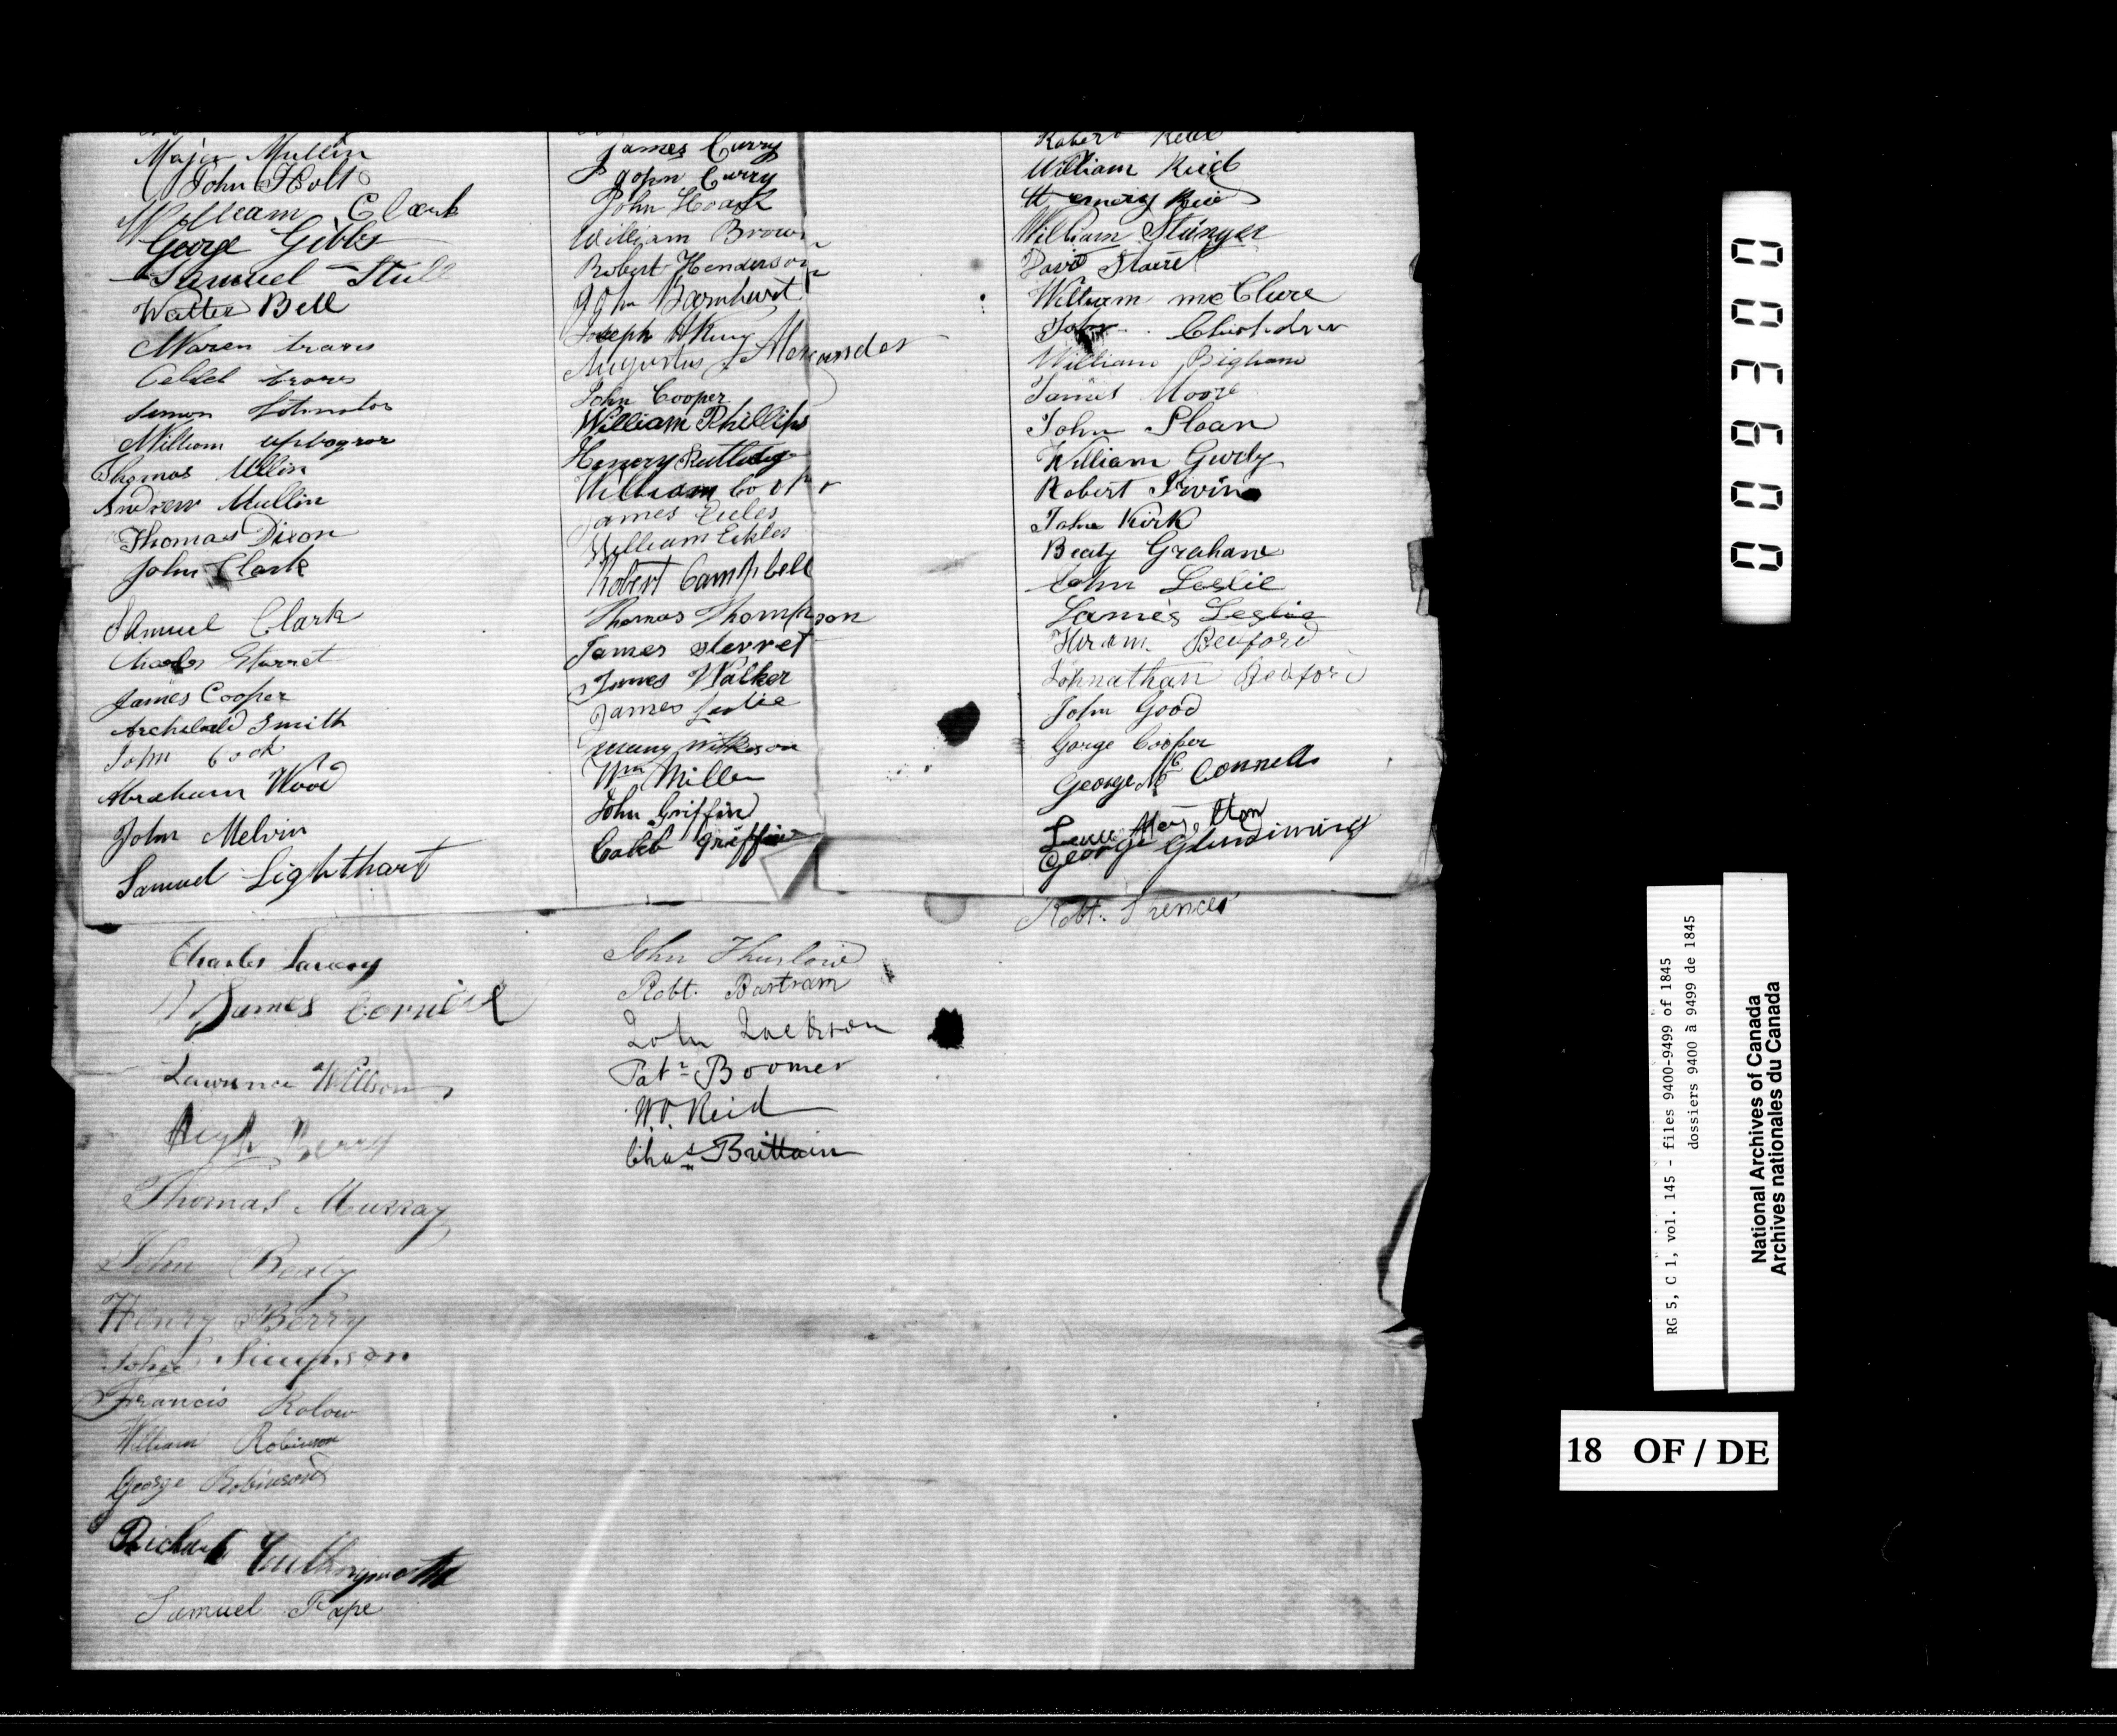 Major Mullin
John Holt
William Clark
George Gibbs
Samuel Still
Walter Bell
Waren travis
Calleb travis
Simon
William
Thomas Ullin
Andrew Mullin
Thomas Dixon
John Clark
Samuel Clark
Charles Starret
James Cooper
Archibald Smith
John Cook
Abraham Wood
John Melvin
Samuel Lighthart
James Curry
John Curry
John Hoak
William Brown
Robert Henderson
John Barnhurst
Joseph A King
Augustus J Alexander
John Cooper
William Phillips
Henery Rutledg
William
James Eceles
William Eckles
Robert Campbell
Thomas Thompson
James Sterret
James Walker
James Leslie
Wilkeson
Wm Miller
John Griffin
Caleb Griffin
Robert Reid
William Reid
Henery Reid
William Stinger
David
William mcClure
John
William Bigham
James Moore
John Sloan
William Gurdy
Robert Irvin
John Kirk
Beaty Graham
John Leslie
James Leslie
Hiram Beaford
Johnathan Beaford
John Good
Gorge Cooper
George McConnell
George Glendinning
Robt.
Charles Savery
James Corneil
Lawrence Willson
Hugh Berry
Thomas Murray
John Beaty
Henry Berry
John Simpson
Francis Kolow
William Robinson
George Robinson
Richard
Samuel Pape
John Thurlow
Robt. Bartram
John Jackson
Patk Boomer
W. P. Reid
Chas Brittain
009300
RG 5, C 1, vol. 145 - files 9400-9499 of 1845
dossiers 9400 à 9499 de 1845
National Archives of Canada
Archives nationales du Canada
18 OF / DE